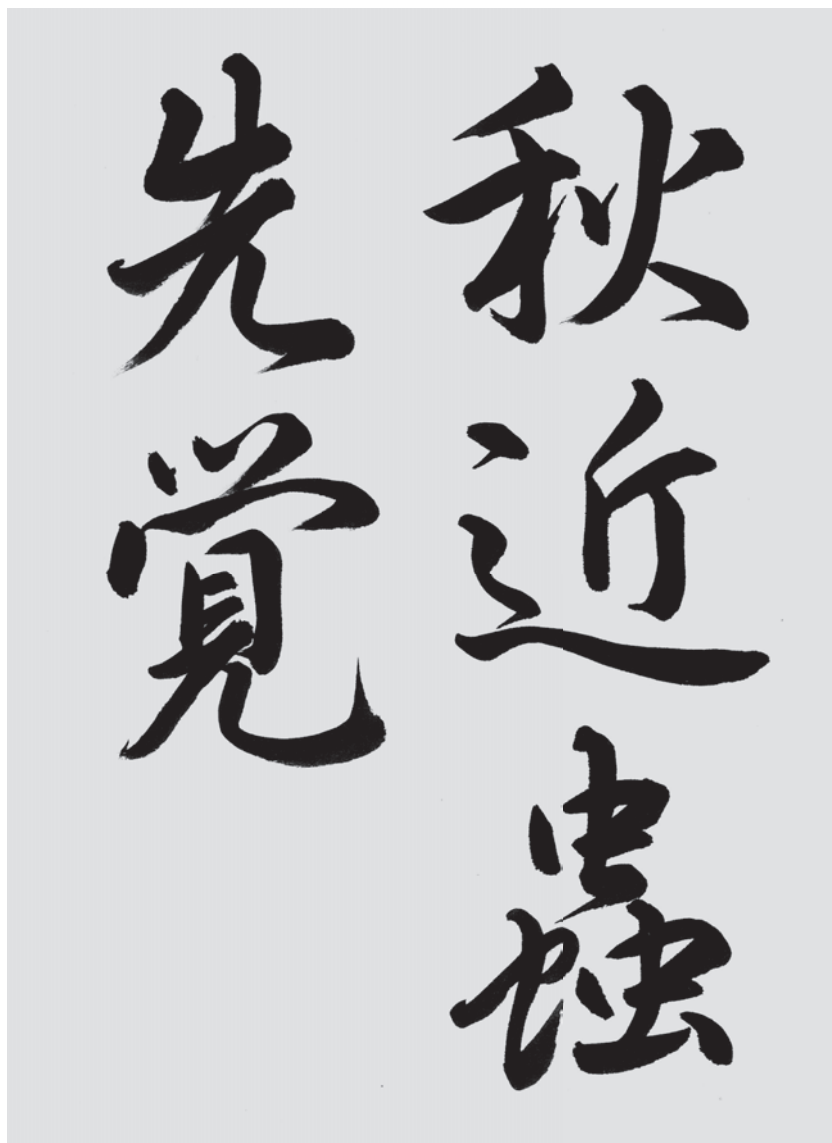 秋近蟲
先覚